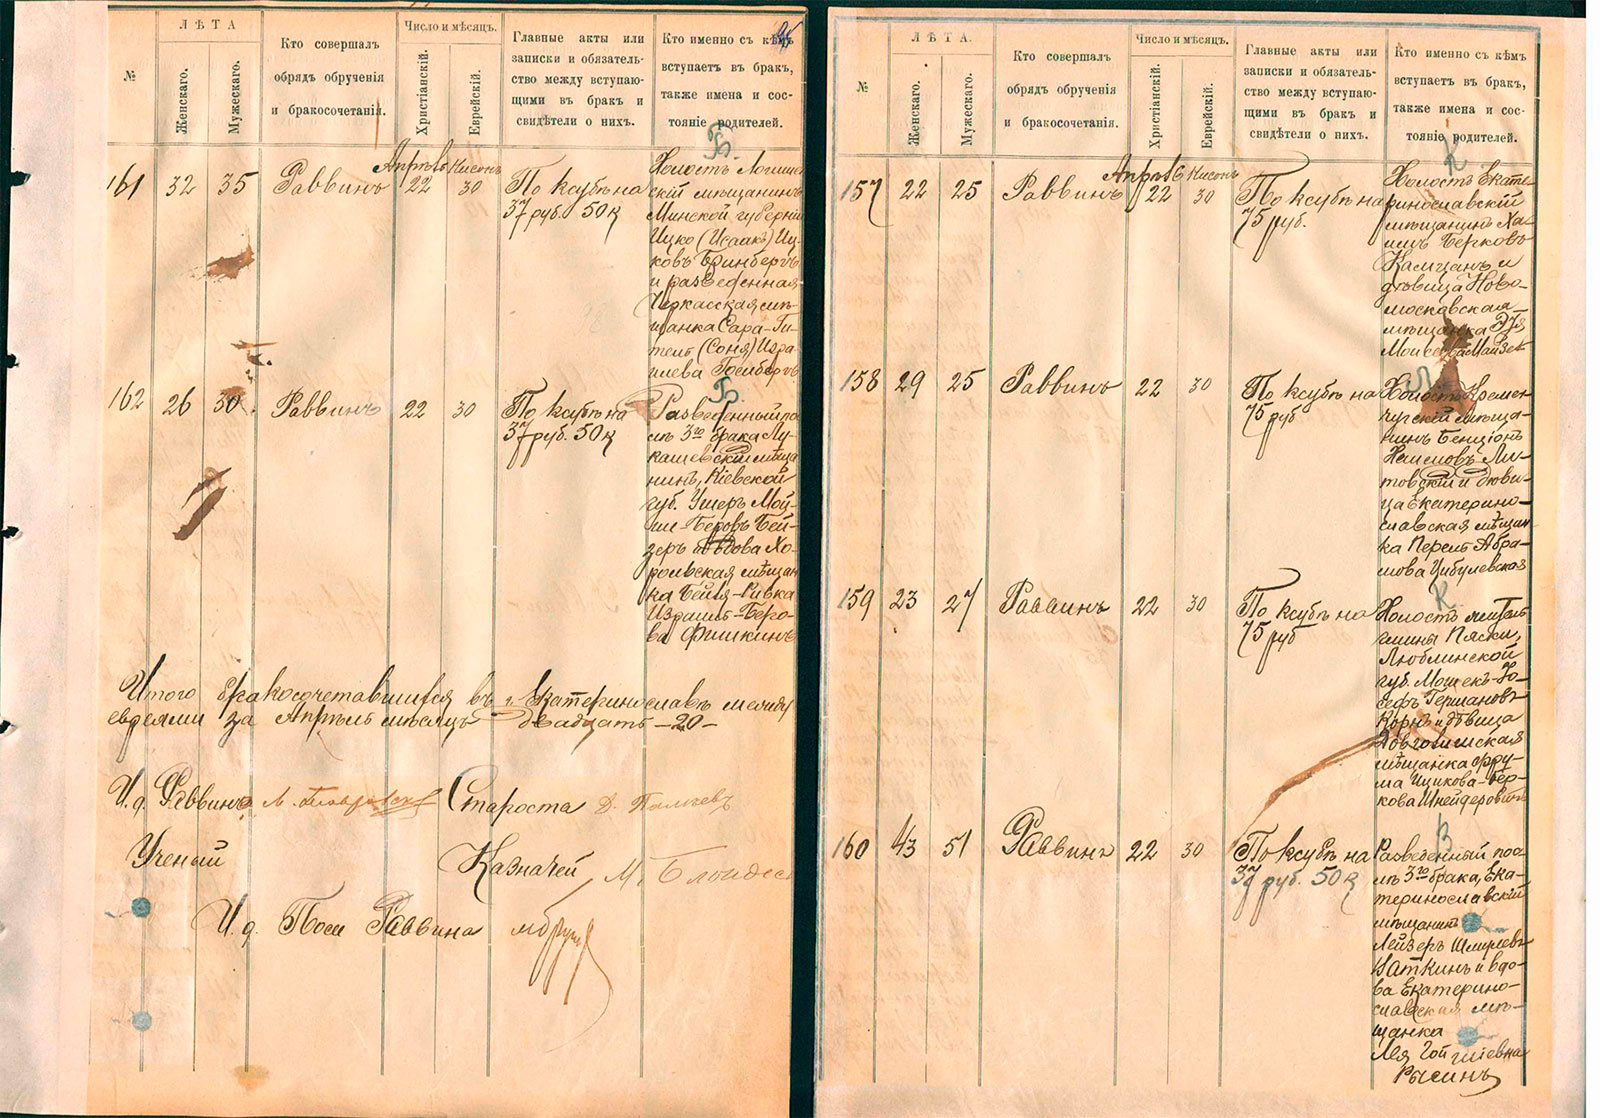 №
ЛѢТА
Женскаго.
Мужескаго.
Кто совершалъ
обрядъ обрученія
и бракосочетанія.
Число и мѣсяцъ.
Христіанскій.
Еврейскій.
Главные акты или
записки и обязатель-
ство между вступаю-
щими въ бракъ и
свидѣтели о нихъ.
Кто именно съ кѣмъ
вступаетъ въ бракъ,
также имена и сос-
тояніе родителей.
Б.
161
32
35
Раввинъ
Апрѣль
22
Нисонъ
30
По ксубѣ на
37 руб. 50 к
Холостъ
скій мѣщанинъ
Минской губерніи
Ицко (Исаакъ) Иц-
ковъ Гринбергъ
и разведенная
Черкасская мѣ-
щанка Сара-Ги-
тель (Соня) Изра-
илева
162
26
30
Раввинъ
22
30
По ксубѣ на
37 руб. 50 к
Б.
Разведенный по-
слѣ 3го брака Лу-
кашевскій мѣща-
нинъ, Кіевской
губ. Ушеръ Мой-
ши-Беровъ Бей-
зеръ и вдова Хо-
рольская мѣщан
ка Бейля-Ривка
Израиль-Беро-
ва Фишкинъ
Итого бракосочетавшихся въ г. Екатеринославѣ между
евреями за Апрѣль мѣсяцъ двадцать -20-
И. д. Раввинъ
Староста Д.
Ученый
Казначей М.
И. д. Пом Раввина
№
ЛѢТА.
Женскаго.
Мужескаго.
Кто совершалъ
обрядъ обрученія
и бракосочетанія.
Число и мѣсяцъ.
Христіанскій.
Еврейскій.
Главные акты или
записки и обязатель-
ство между вступаю-
щими въ бракъ и
свидѣтели о нихъ.
Кто именно съ кѣмъ
вступаетъ въ бракъ,
также имена и сос-
тояніе родителей.
К
157
22
25
Раввинъ
Апрѣль
22
Нисонъ
30
По ксубѣ на
75 руб.
Холостъ Екате-
ринославскій
мѣщанинъ Ха-
имъ Берковъ
Камцанъ и
дѣвица Ново-
московская
мѣщанка
Моисеева Майзе
158
29
25
Раввинъ
22
30
По ксубѣ на
75 руб
Холостъ Кремен
чугскій мѣща-
нинъ Бенціонъ
Ли-
товскій и дѣви-
ца Екатерино-
славская мѣщан
ка Перель Абра-
мова Цибулевская
К
159
23
27
Раввинъ
22
30
По ксубѣ на
75 руб
Холостъ житель
гмины Пяски,
Люблинской
губ. Мошек-Іо-
сефъ Германовъ
Корнъ и дѣвица
мѣщанка Фру-
ма Ицикова-Бер-
кова Шнейдеровичъ
В
160
43
51
Раввинъ
22
30
По ксубѣ на
37 руб. 50 к
Разведенный пос-
лѣ 3го брака, Ека-
теринославскій
мѣщанинъ
Лейзеръ Шмулевъ
Ваткинъ и вдо-
ва Екатерино-
славская мѣ-
щанка
Лея
Рысинъ